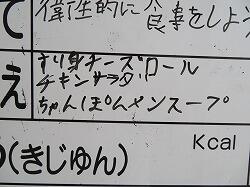 て 衛生的に食事をしよう
え すり身チーズロール
チキンサラダ
ちゃんぽんメンスープ
Kcal
(きじゅん)